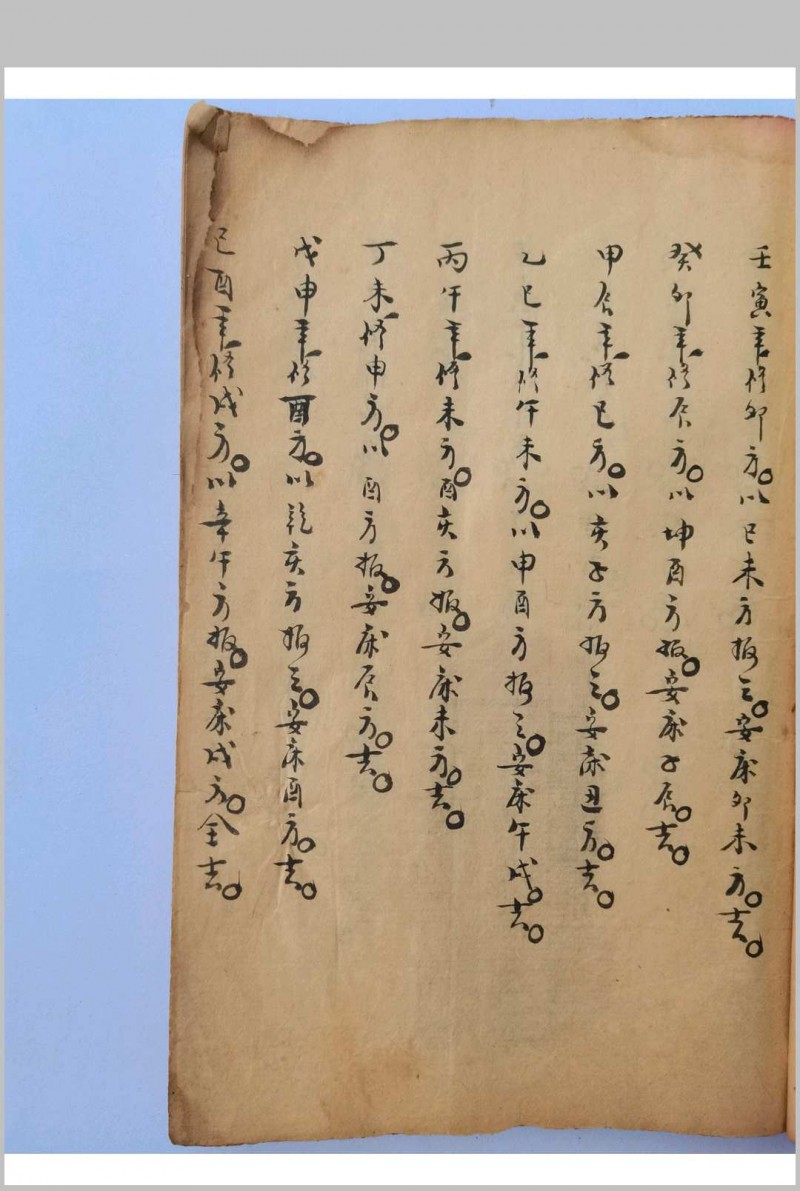 壬寅年修卯方。以巳未方报之。安床卯未方。吉。
癸卯年修辰方。以坤酉方报。安床子辰。吉。
甲辰年修巳方。以亥子方报之。安床丑方。吉。
乙巳年修午未方。以申酉方报之。安床午戌。吉。
丙午年修未方。酉亥方报。安床未方。吉。
丁未修申方。以酉方报。安床辰方。吉。
戊申年修酉方。以乾亥方报之。安床酉方。吉。
己酉年修戌方。以辛午方报。安床戌方。全吉。